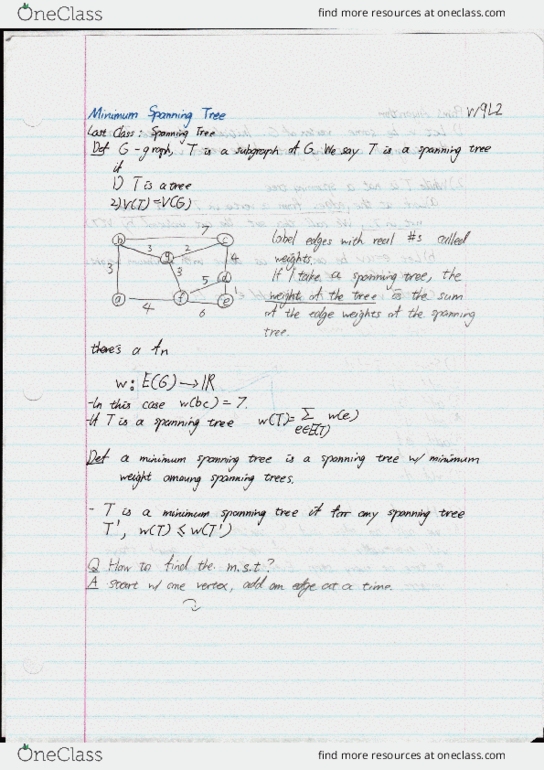 OneClass
find more resources at oneclass.com
Minimum Spanning Tree
W9L2
Last Class: Spanning Tree
Def G-graph, T is a subgraph of G. We say T is a spanning tree
if
1) T is a tree
2) V(T)=V(G)
b 7 c
3 2
3 g 4
3 5 d
1
a 4 f 6 e
label edges with real #s called
weights.
If I take a spanning tree, the
weight of the tree is the sum
of the edge weights of the spanning
tree.
there's a fn
w: E(G)→ℝ
-In this case w(bc) = 7.
-If T is a spanning tree w(T)= Σ w(e)
e∈E(T)
Def a minimum spanning tree is a spanning tree w/ minimum
weight amoung spanning trees.
- T is a minimum spanning tree if for any spanning tree
T', w(T) ≤ w(T')
Q How to find the m.s.t?
A start w/ one vertex, add an edge at a time.
OneClass
find more resources at oneclass.com